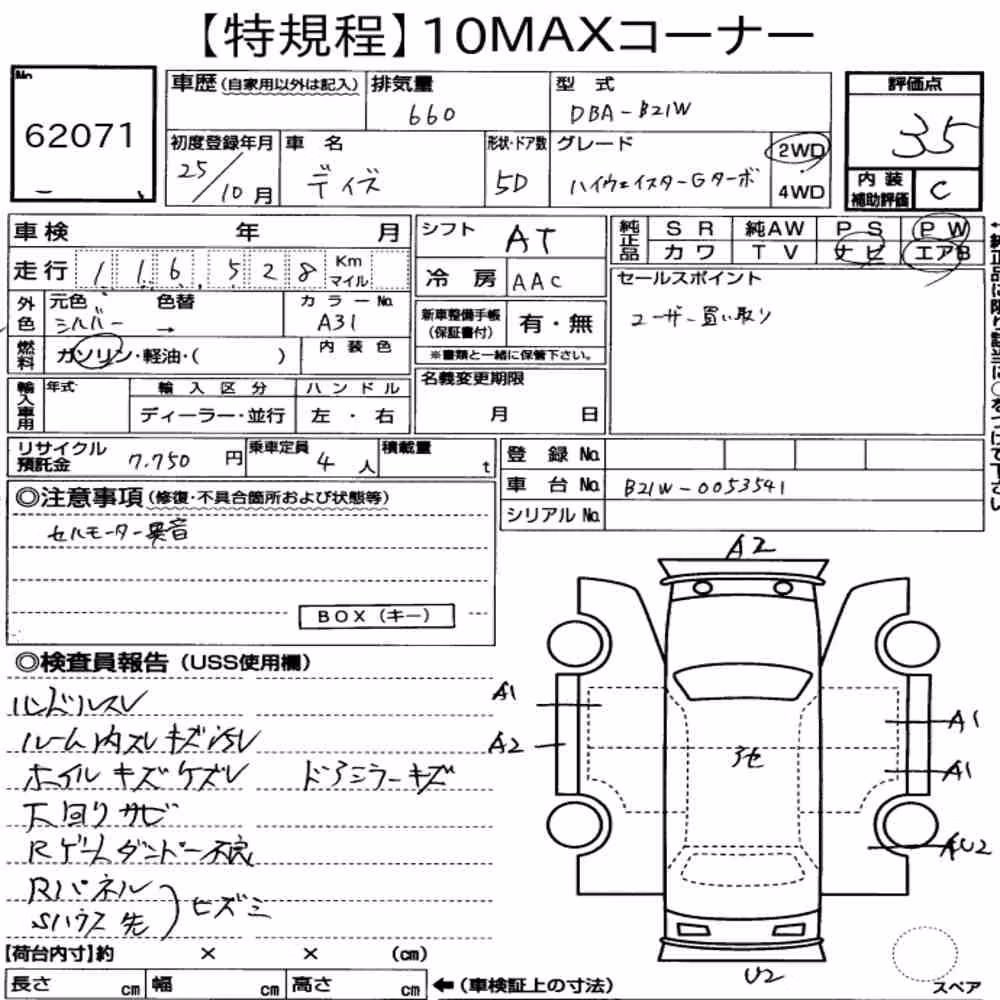 【特規程】10MAXコーナー
No.
62071
車歴(自家用以外は記入)
排気量
660
型式
DBA-B21W
評価点
35
初度登録年月
25/10月
車名
デイズ
形状・ドア数
5D
グレード
ハイウェイスターGターボ
2WD
4WD
内装
補助評価
C
車検 年 月
シフト
AT
純正品
SR 純AW PS PW
カワ TV ナビ エアB
走行 116,528 Km マイル
冷房
AAC
セールスポイント
ユーザー買い取り
外色
元色 色替
シルバー →
カラーNo.
A31
新車整備手帳
(保証書付)
有・無
※書類と一緒に保管下さい。
燃料
ガソリン・軽油・( )
内装色
名義変更期限
月 日
輸入車用
年式
輸入区分
ハンドル
ディーラー・並行
左・右
リサイクル
預託金
7,750 円
乗車定員
4人
積載量
t
登録No.
車台No. B21W-0053541
シリアルNo.
◎注意事項(修復・不具合箇所および状態等)
セルモーター異音
BOX(キー)
A2
◎検査員報告(USS使用欄)
ハンドルスレ
ルーム内スレキズ汚レ
ホイルキズケズレ ドアミラーキズ
下回りサビ
Rゲートダンパー不良
Rパネル
Sハウス先
ヒズミ
A1
A2
A1
A1
AU2
U2
【荷台内寸】約 × × (cm)
長さ cm 幅 cm 高さ cm ←(車検証上の寸法)
スペア